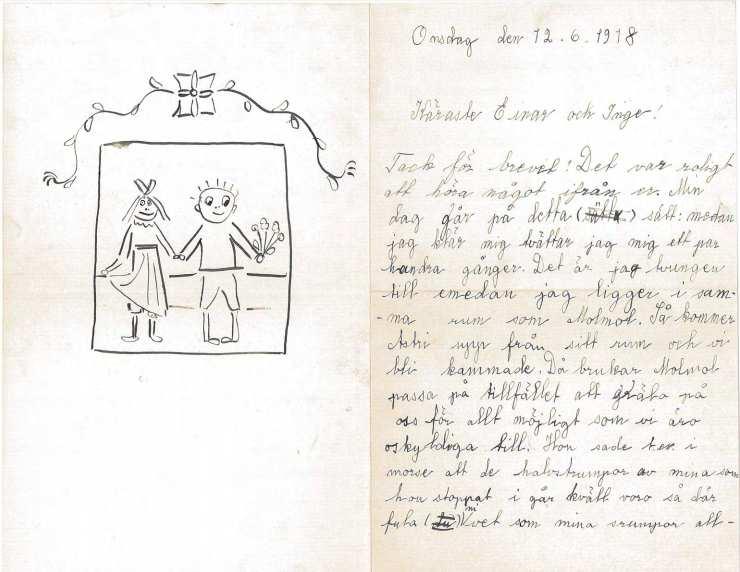 Onsdag den 12.6.1918
Käraste Einar och Inge!
Tack för brevet! Det var roligt
att höra något ifrån er. Min
dag går på detta () sätt: medan
jag klär mig tvättar jag mig ett par
hundra gånger. Det är jag tvungen
till emedan jag ligger i sam-
-ma rum som Molmol. Så kommer
Astri upp från sitt rum och vi
bli kammade. Då brukar Molmol
passa på tillfället att gräla på
oss för allt möjligt som vi äro
oskyldiga till. Hon sade t.ex. i
morse att de halvstrumpor av mina som
hon stoppat i går kväll voro så där
fula () (ni) vet som mina srumpor all-